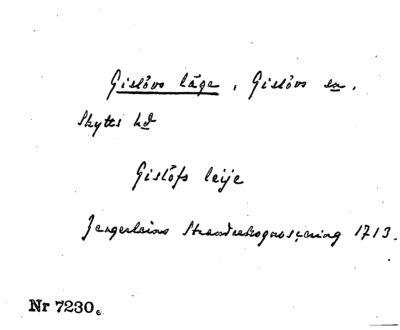 Gislövs läge, Gislövs sn,
Skytts hd
Gislöfs leije
Strandrekognoscering 1713.
Nr 7230.